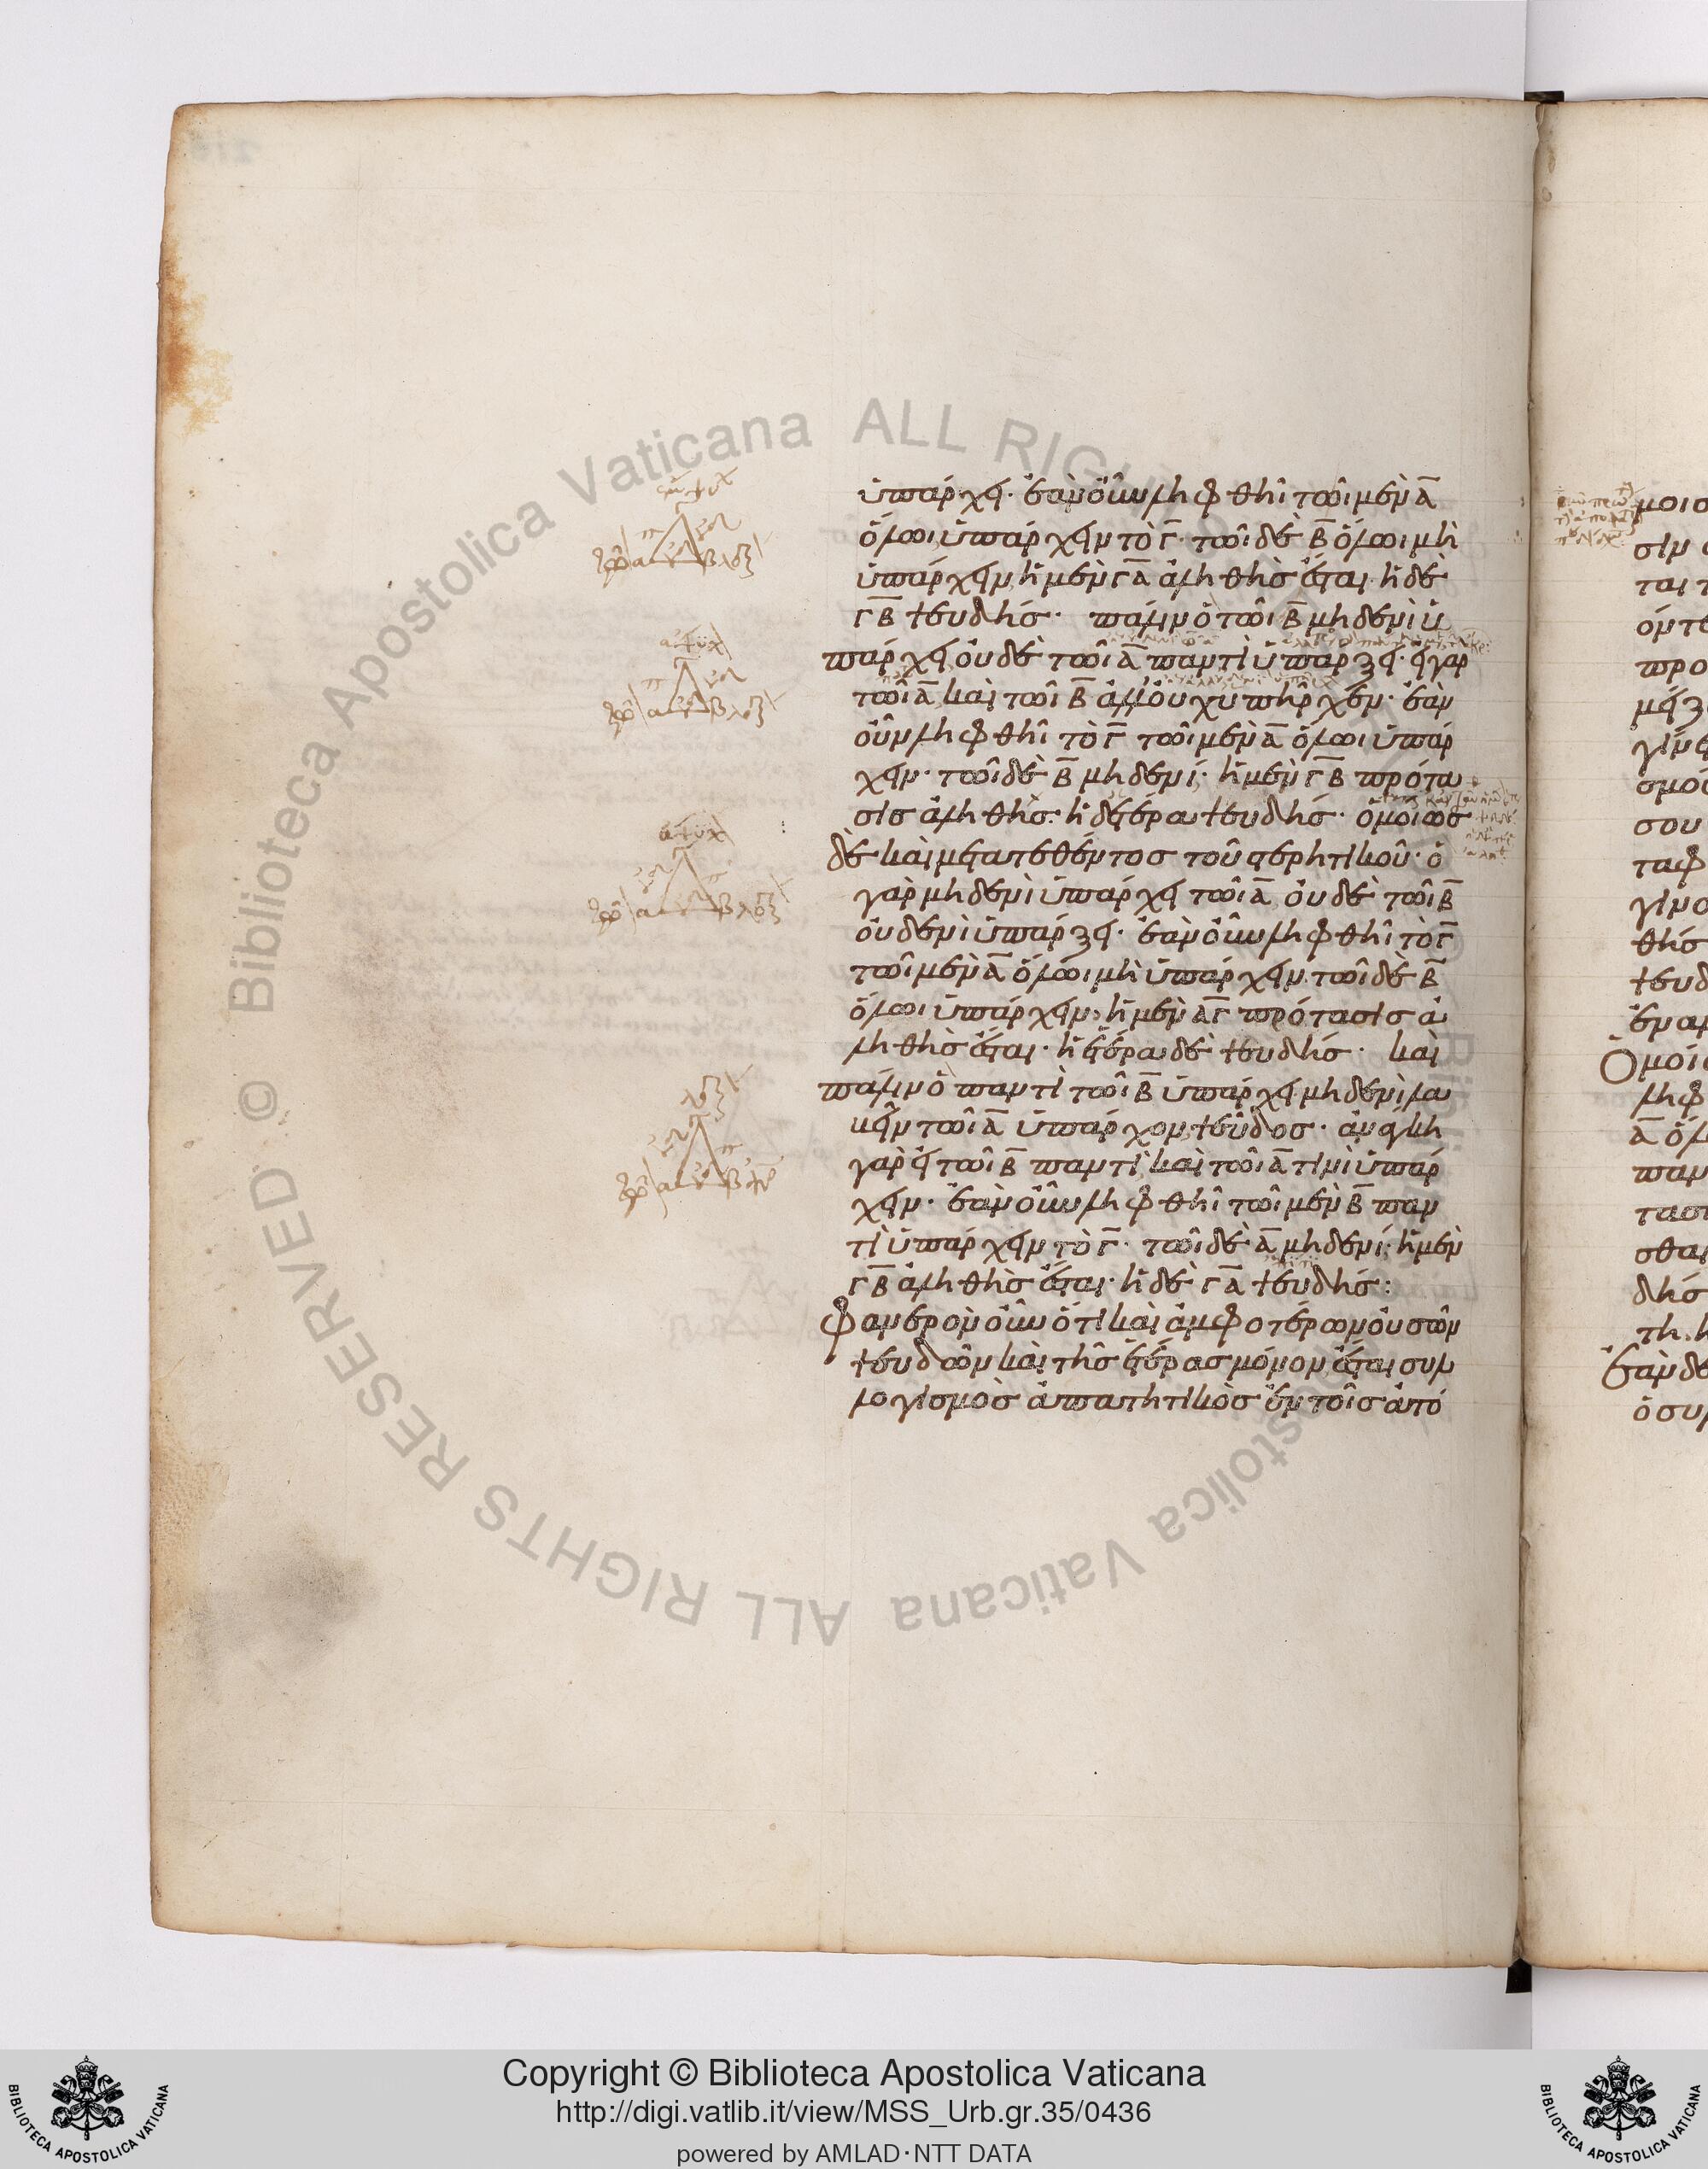 ὑπάρχει· ἐὰν οὖν ληφθῆι τῶι μὲν Α
ὅλωι ὑπάρχειν τὸ Γ· τῶι δὲ Β ὅλωι μὴ
ὑπάρχειν, ἡ μὲν ΓΑ ἀληθὴς ἔσται· ἡ δὲ
ΓΒ ψευδής· πάλιν ὃ τῶι Β μηδενὶ ὑ
πάρχει, οὐδὲ τῶι Α παντὶ ὑπάρξει· εἰ γὰρ
τῶι Α, καὶ τῶι Β ἀλλ' οὐχ ὑπῆρχεν· ἐὰν
οὖν ληφθῆι τὸ Γ τῶι μὲν Α ὅλωι ὑπάρ
χειν· τῶι δὲ Β μηδενί· ἡ μὲν ΓΒ πρότα
σις ἀληθής· ἡ δ' ἑτέρα ψευδής· ὁμοίως
δὲ καὶ μετατεθέντος τοῦ στερητικοῦ· ὃ
γὰρ μηδενὶ ὑπάρχει τῶι Α, οὐδὲ τῶι Β
οὐδενὶ ὑπάρξει· ἐὰν οὖν ληφθῆι τὸ Γ
τῶι μὲν Α ὅλωι μὴ ὑπάρχειν, τῶι δὲ Β
ὅλωι ὑπάρχειν, ἡ μὲν ΑΓ πρότασις ἀ
ληθὴς ἔσται· ἡ ἑτέρα δὲ ψευδής· καὶ
πάλιν ὃ παντὶ τῶι Β ὑπάρχει μηδενὶ λα
βεῖν τῶι Α ὑπάρχον, ψεῦδος· ἀνάγκη
γὰρ εἰ τῶι Β παντί, καὶ τῶι Α τινὶ ὑπάρ
χειν· ἐὰν οὖν ληφθῆι τῶι μὲν Β παν
τὶ ὑπάρχειν τὸ Γ· τῶι δὲ Α μηδενί, ἡ μὲν
ΓΒ ἀληθὴς ἔσται· ἡ δὲ ΓΑ ψευδής:
φανερὸν οὖν ὅτι καὶ ἀμφοτέρων οὐσῶν
ψευδῶν καὶ τῆς ἑτέρας μόνον ἔσται συλ
λογισμὸς ἀπατητικὸς ἐν τοῖς ἀτό
μοις
σιν
ται τ
ὄντε
προ
μείζ
γίνε
σμοῦ
σου
ταφ
γινο
θής
ψευδ
ἐναν
Ὁμοίω
ληφ
Α ὅλ
παν
τασι
σθαι
δής
τη, κ
Ἐὰν δὲ
ὁ συλ
© Biblioteca Apostolica Vaticana ALL RIGHTS RESERVED
Copyright © Biblioteca Apostolica Vaticana
http://digi.vatlib.it/view/MSS_Urb.gr.35/0436
powered by AMLAD·NTT DATA
BIBLIOTECA APOSTOLICA VATICANA
BIBLIOTECA APOSTOLICA VATICANA